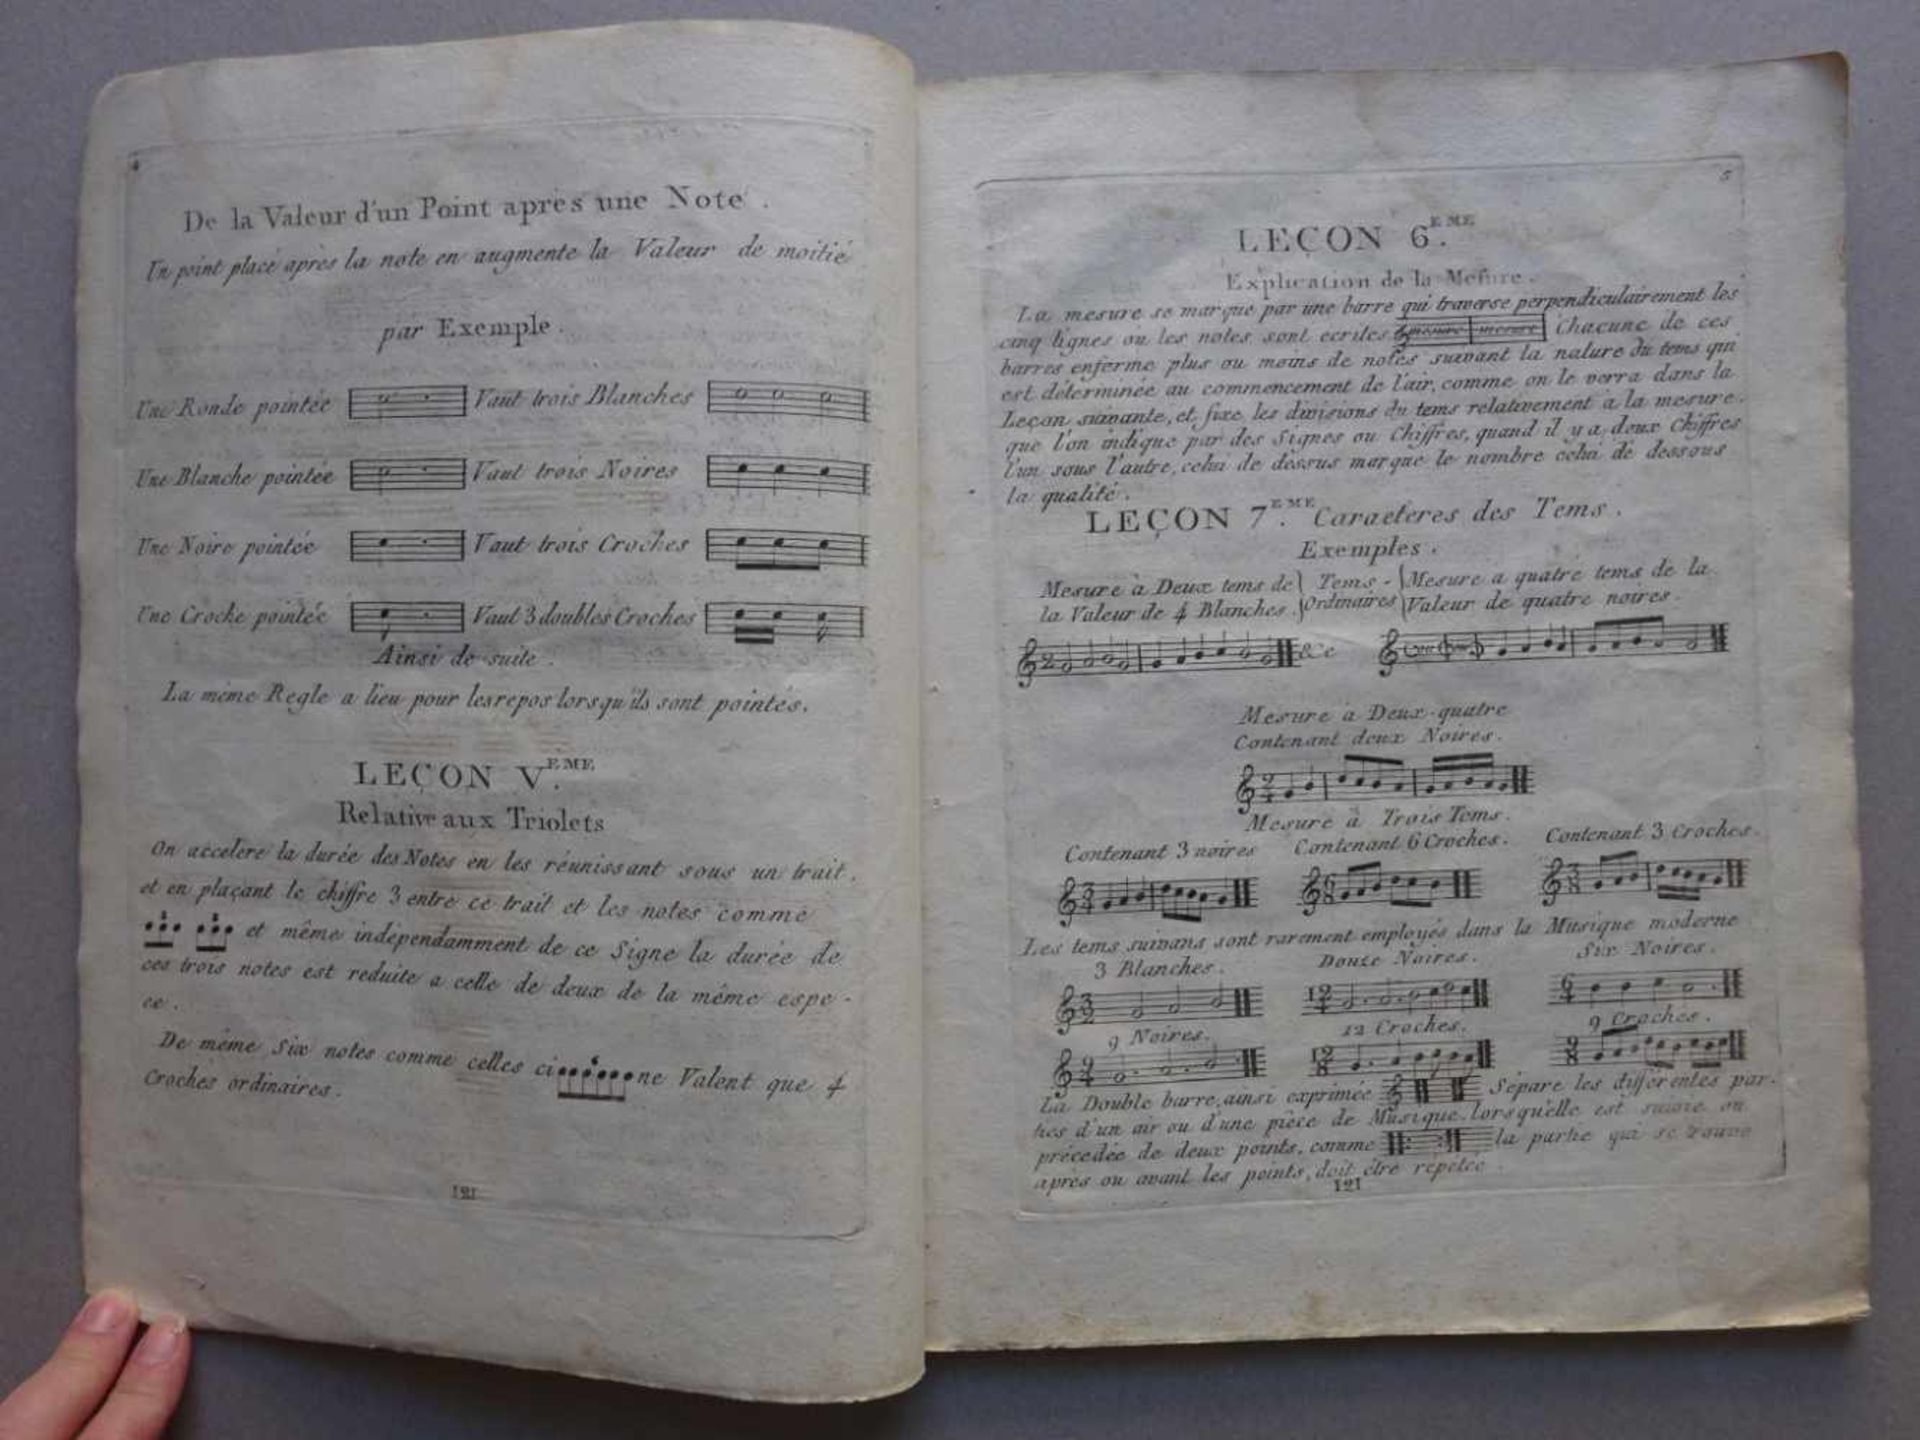 4
De la Valeur d'un Point après une Note.
Un point placé après la note en augmente la Valeur de moitié
par Exemple.
Une Ronde pointée Vaut trois Blanches
Une Blanche pointée Vaut trois Noires
Une Noire pointée Vaut trois Croches
Une Croche pointée Vaut 3 doubles Croches
Ainsi de suite.
La même Regle a lieu pour les repos lorsqu'ils sont pointés.
LEÇON V.EME
Relative aux Triolets
On accelere la durée des Notes en les réunissant sous un trait,
et en plaçant le chiffre 3 entre ce trait et les notes comme
et même indépendamment de ce Signe la durée de
ces trois notes est reduite a celle de deux de la même espe-
ce.
De même Six notes comme celles ci ne Valent que 4
Croches ordinaires.
121
5
LEÇON 6.EME
Explication de la Mesure.
La mesure se marque par une barre qui traverse perpendiculairement les
cinq lignes ou les notes sont ecrites mesure mesure Chacune de ces
barres enferme plus ou moins de notes suivant la nature du tems qui
est déterminée au commencement de l'air, comme on le verra dans la
Leçon suivante, et fixe les divisions du tems relativement a la mesure.
que l'on indique par des Signes ou Chiffres, quand il y a deux Chiffres
l'un sous l'autre, celui de dessus marque le nombre celui de dessous
la qualité.
LEÇON 7.EME Caracteres des Tems.
Exemples.
Mesure à Deux tems de Tems - Mesure a quatre tems de la
la Valeur de 4 Blanches. Ordinaires Valeur de quatre noires.
2 &c
Mesure à Deux-quatre
Contenant deux Noires.
2
4
Mesure à Trois Tems.
Contenant 3 noires Contenant 6 Croches. Contenant 3 Croches.
3 6 3
4 8 8
Les tems suivans sont rarement employés dans la Musique moderne
3 Blanches. Douze Noires. Six Noires.
3 12 6
2 4 4
9 Noires. 12 Croches. 9 Croches.
9 12 9
4 8 8
La Double barre, ainsi exprimée Sépare les différentes par-
ties d'un air ou d'une pièce de Musique. lorsqu'elle est suivie ou
précedée de deux points, comme la partie qui se trouve
après ou avant les points, doit être répétée.
121